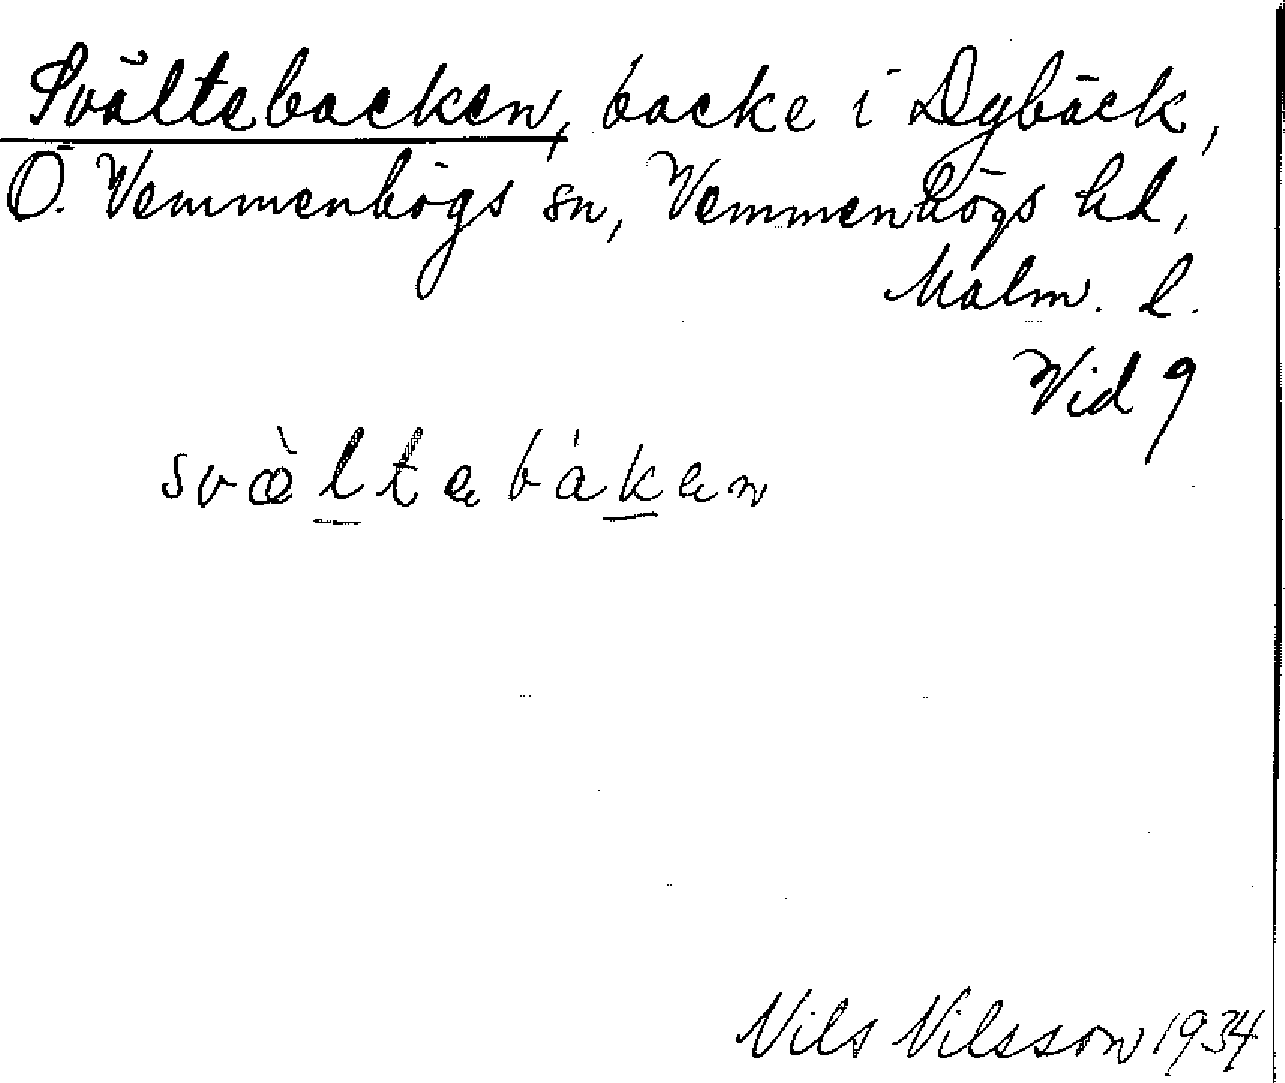 Svältebacken, backe i Dybäck,
Ö. Vemmenhögs sn, Vemmenhögs hd,
Malm. l.
Vid 9
svæ̀ltebáken
Nils Nilsson 1934